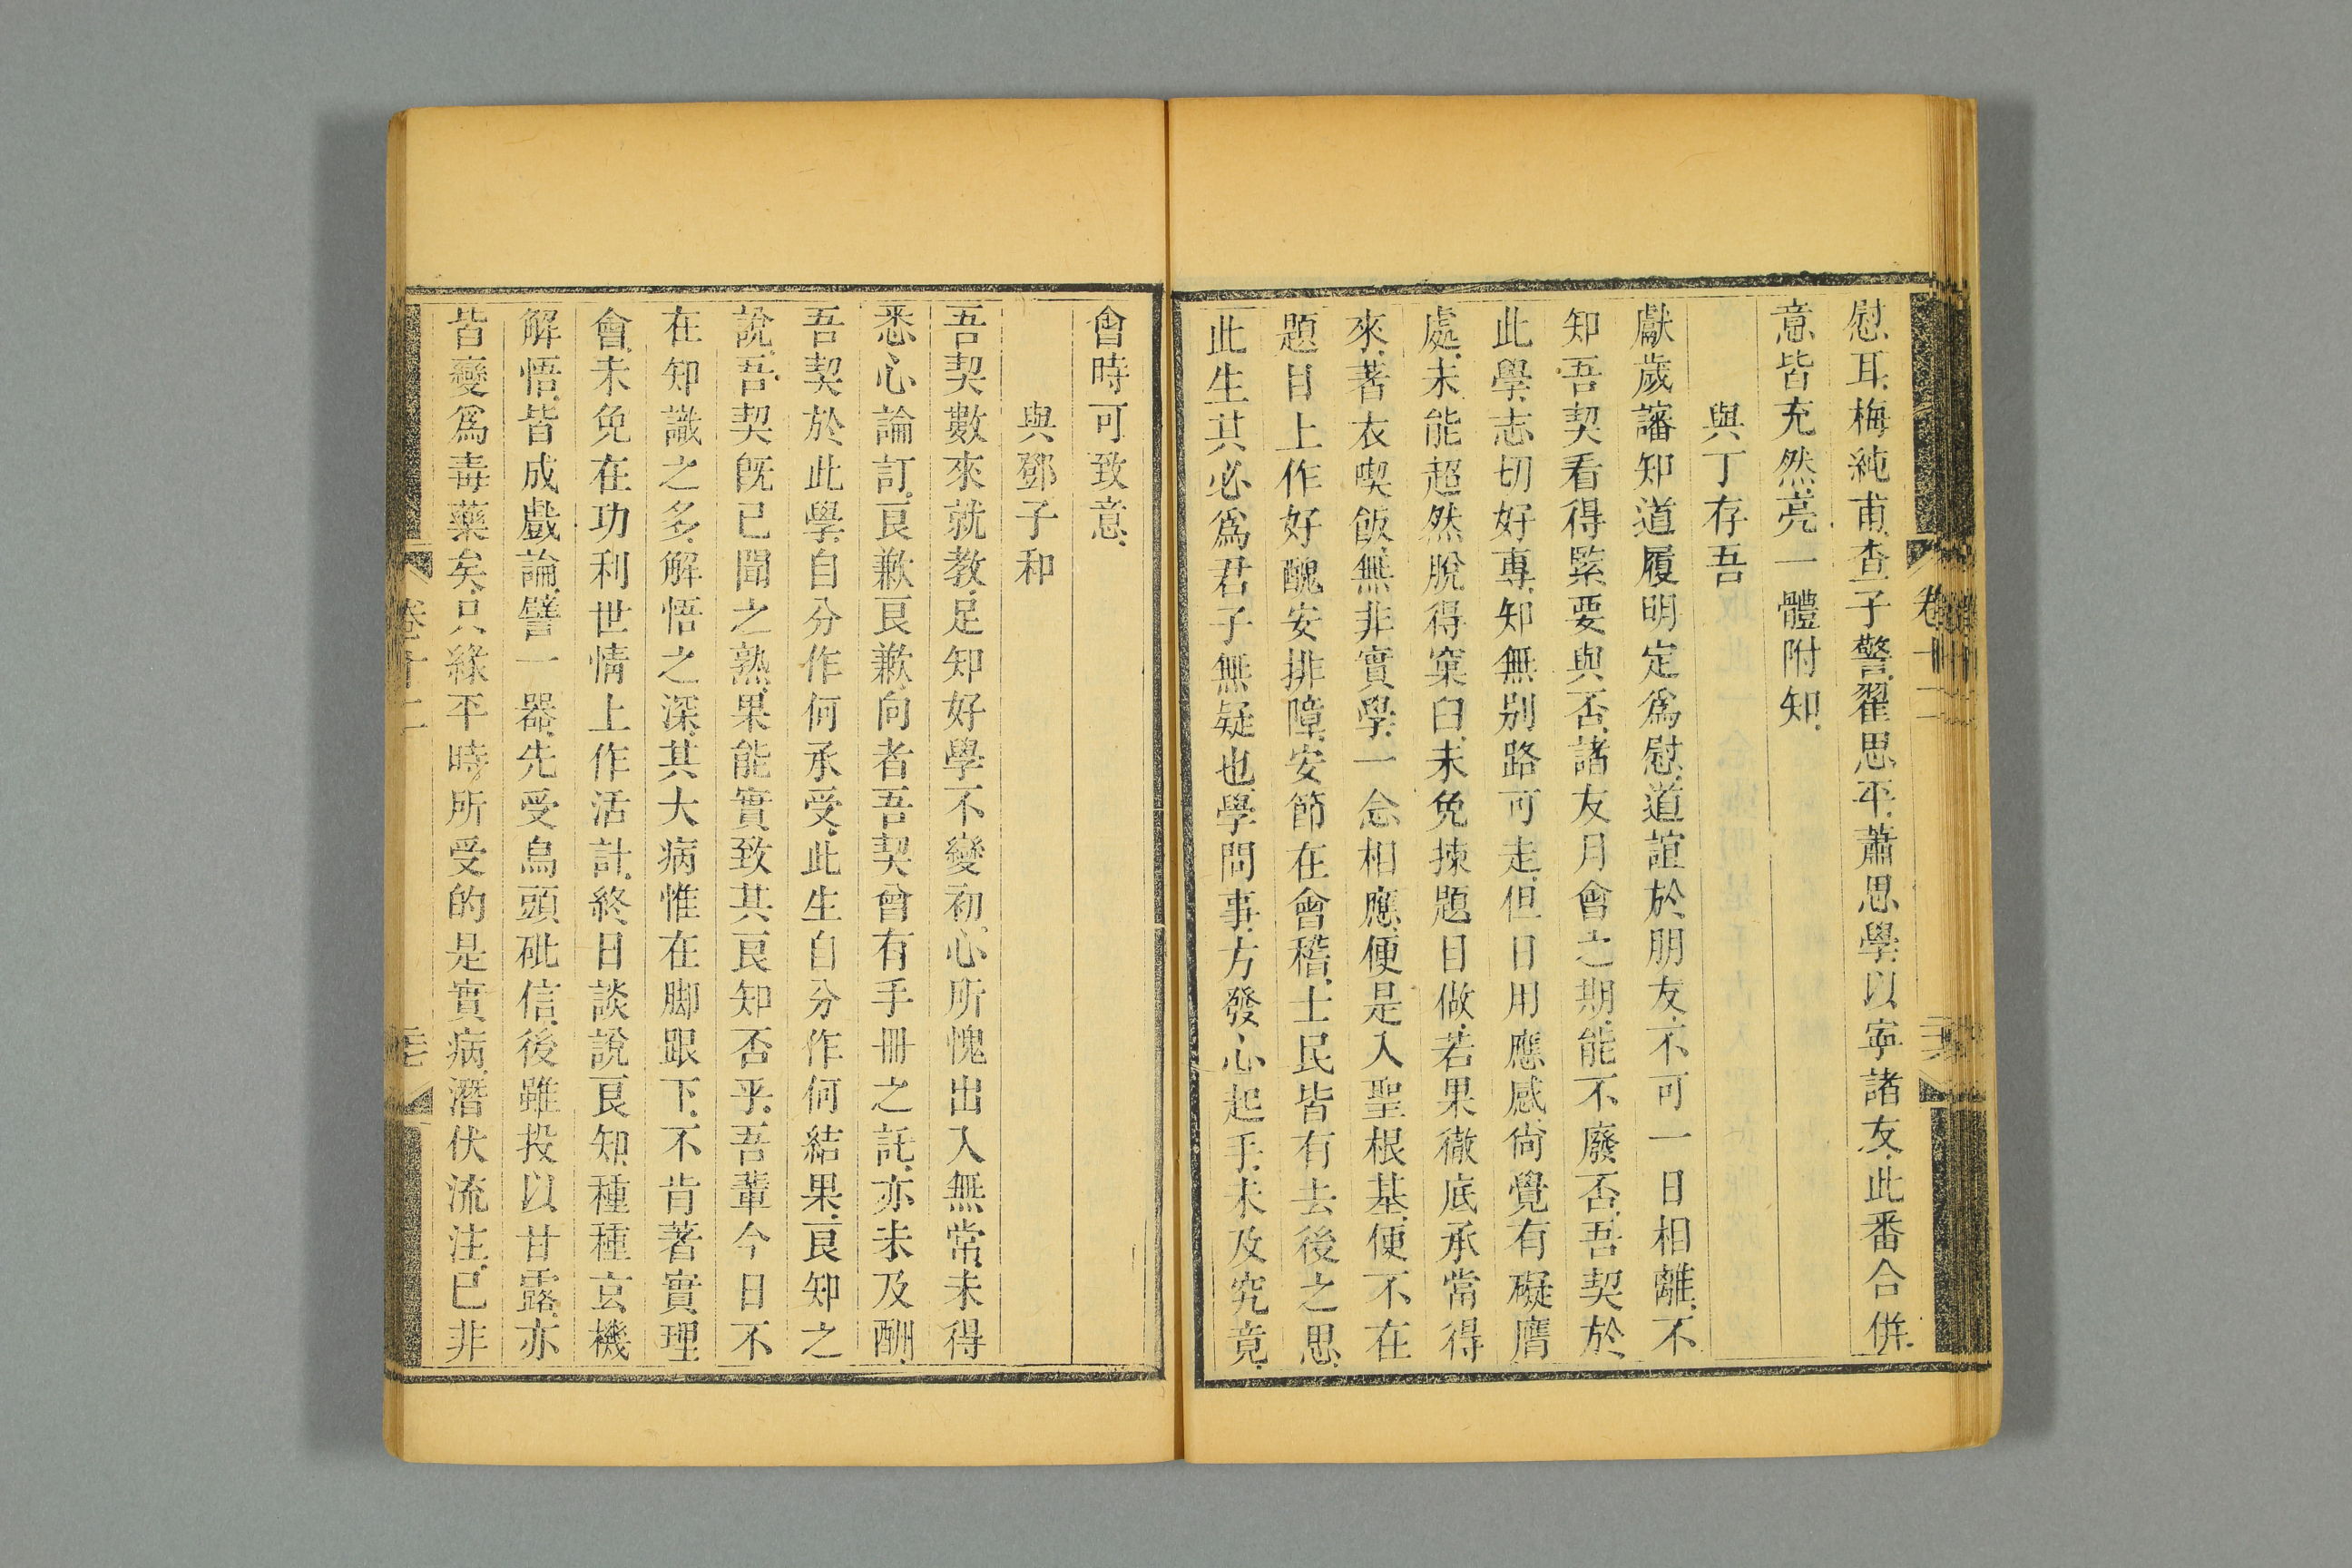 慰耳梅純甫查子警翟思平蕭思學以寧諸友此番合併
意皆充然亮一體附知
與丁存吾
獻歲諳知道履明定爲慰道誼於朋友不可一日相離不
知吾契看得緊要與否諸友月會之期能不廢否吾契於
此學志切好專知無別路可走但日用應感尙覺有礙膺
處未能超然脫得窠臼未免揀題目做若果徹底承當得
來著衣喫飯無非實學一念相應便是入聖根基便不在
題目上作好醜安排障安節在會稽士民皆有去後之思
此生其必爲君子無疑也學問事方發心起手未及究竟
卷十二
會時可致意
與鄧子和
吾契數來就教足知好學不變初心所愧出入無常未得
悉心論訂良歉良歉向者吾契曾有手冊之託亦未及酬
吾契於此學自分作何承受此生自分作何結果良知之
說吾契旣已聞之熟果能實致其良知否乎吾輩今日不
在知識之多解悟之深其大病惟在脚跟下不肯著實理
會未免在功利世情上作活計終日談說良知種種玄機
解悟皆成戲論譬一器先受烏頭砒信後雖投以甘露亦
皆變爲毒藥矣只緣平時所受的是實病潛伏流注已非
卷十二